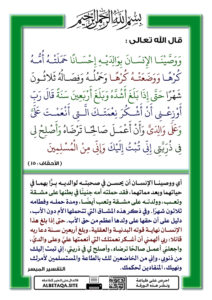 بسم الله الرحمن الرحيم
قال الله تعالى :
وَوَصَّيْنَا الإِنسَانَ بِوَالِدَيْهِ إِحْسَانًا حَمَلَتْهُ أُمُّهُ
كُرْهًا وَوَضَعَتْهُ كُرْهًا وَحَمْلُهُ وَفِصَالُهُ ثَلاثُونَ
شَهْرًا حَتَّى إِذَا بَلَغَ أَشُدَّهُ وَبَلَغَ أَرْبَعِينَ سَنَةً قَالَ رَبِّ
أَوْزِعْنِي أَنْ أَشْكُرَ نِعْمَتَكَ الَّتِي أَنْعَمْتَ عَلَيَّ
وَعَلَى وَالِدَيَّ وَأَنْ أَعْمَلَ صَالِحًا تَرْضَاهُ وَأَصْلِحْ لِي
فِي ذُرِّيَّتِي إِنِّي تُبْتُ إِلَيْكَ وَإِنِّي مِنَ الْمُسْلِمِينَ
( الأحقاف : ١٥ )
أي ووصينا الإنسان أن يحسن في صحبته لوالديه برًّا بهما في
حياتهما وبعد مماتهما، فقد حملته أمه جنينًا في بطنها على مشقة
وتعب، وولدته على مشقة وتعب أيضًا، ومدة حمله وفطامه
ثلاثون شهرًا. وفي ذكر هذه المشاق التي تتحملها الأم دون الأب،
دليل على أن حقها على ولدها أعظم من حق الأب. حتى إذا بلغ هذا
الإنسان نهاية قوته البدنية والعقلية، وبلغ أربعين سنة دعا ربه
قائلا: ربي ألهمني أن أشكر نعمتك التي أنعمتها عليَّ وعلى والديَّ،
واجعلني أعمل صالحًا ترضاه، وأصلح لي في ذريتي، إني تبت إليك
من ذنوبي، وإني من الخاضعين لك بالطاعة والمستسلمين لأمرك
ونهيك، المنقادين لحكمك.
التفسير الميسر
ALBETAQA.SITE